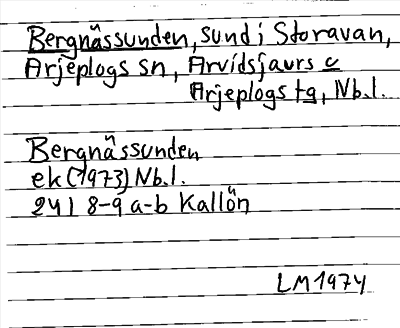 Bergnässunden, sund i Storavan,
Arjeplogs sn, Arvidsjaurs c
Arjeplogs tg, Nb.l.
Bergnässunden
ek (1973) Nb.l.
24 I 8-9 a-b Kallön
LM 1974